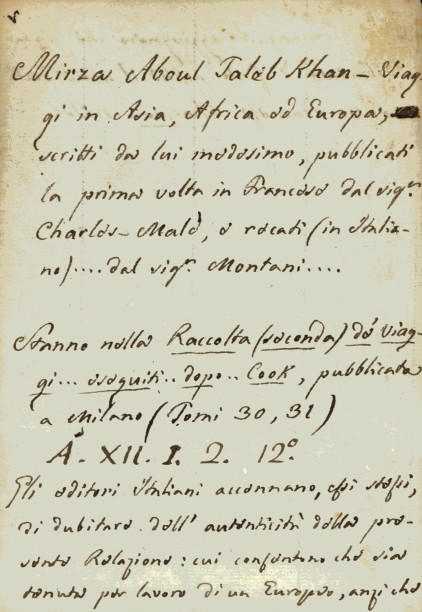 Mirza Aboul Taleb Khan - Viag-
gi in Asia, Africa ed Europa,
scritti da lui medesimo, pubblicati
la prima volta in Francese dal sigr.
Charles-Malò, e recati (in Italia-
no).... dal sigr. Montani....
Stanno nella Raccolta (seconda) de' Viag-
gi... eseguiti.. dopo.. Cook, pubblicata
a Milano (Tomi 30, 31)
A. XII. I. 2. 12.º
Gli editori Italiani accennano, essi stessi,
di dubitare dell' autenticità della pre-
sente Relazione: cui consentono che sia
tenuta per lavoro di un Europeo, anzi che